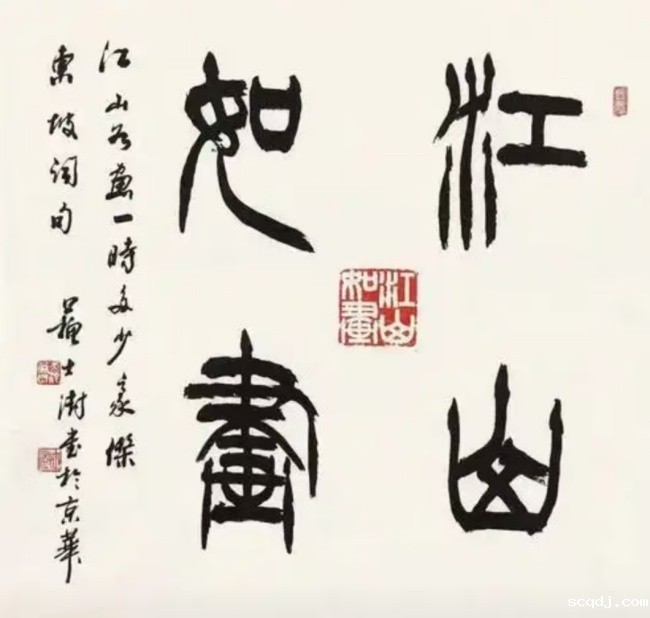 江山
如畫
江山如畫
江山如畫一時多少豪傑
東坡詞句 蘇士澍書於京華
scqdj.com